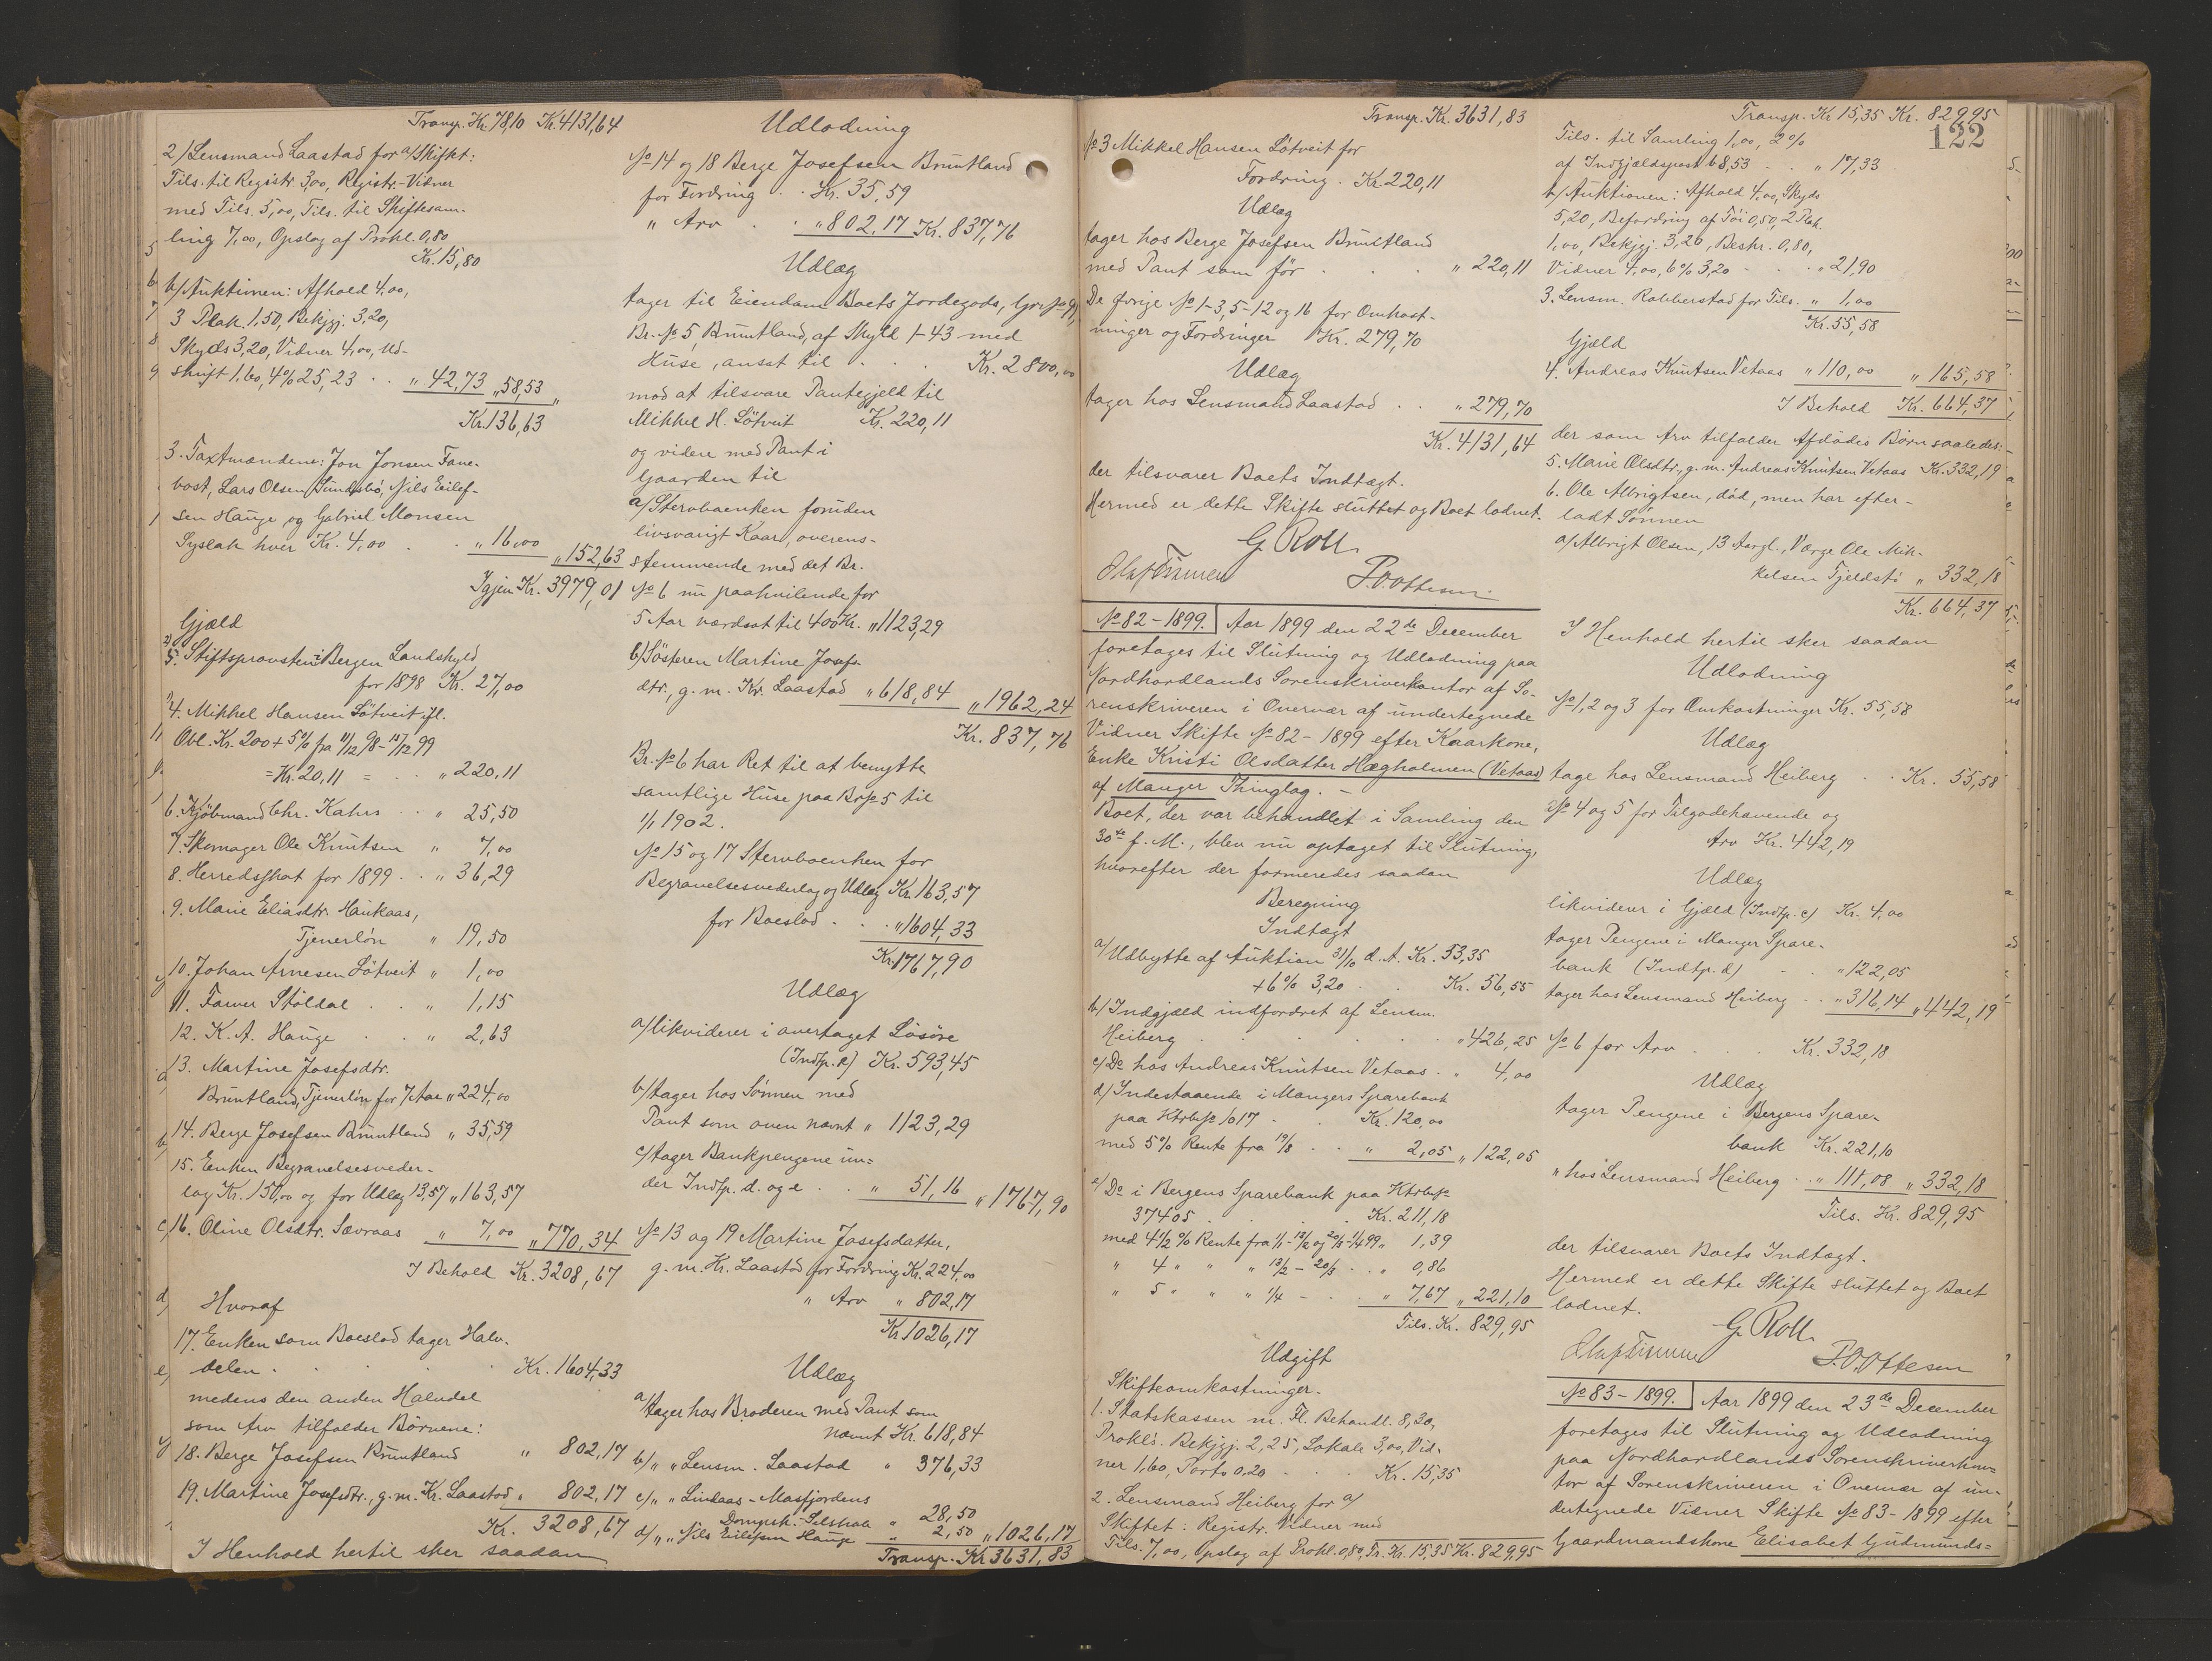 Transp. Kr. 78,10 Kr. 4131,64
2/ Lensmand Laastad for a/ Skiftet:
Tils. til Registr. 3,00, Registr.-Vidner
med Tils. 5,00, Tils. til Skiftesam-
ling 7,00, Opslag af Prokl. 0,80
Kr. 15,80
b/ Auktionen: Afhold 4,00,
3 Plak. 1,50, Bekjgj. 3,20,
Skyds 3,20, Vidner 4,00, Ud-
skrift 1,60, 4% 25,23 . . „ 42,73 „ 58,53
Kr. 136,63
3. Taxtmændene: Jon Jonsen Fane-
bost, Lars Olsen Sundsbö, Nils Eilef-
sen Hauge og Gabriel Monsen
Syslak hver Kr. 4,00 . . „ 16,00
„ 152,63
Igjen Kr. 3979,01
Gjæld
5. Stiftsprovsten i Bergen Landskyld
for 1898 Kr. 27,00
4. Mikkel Hansen Lötveit ifl.
Obl. Kr. 200 + 5% fra 11/12 98 - 15/12 99
= Kr. 20,11 = . . „ 220,11
6. Kjöbmand Chr. Kahrs . . „ 25,50
7. Skomager Ole Knutsen „ 7,00
8. Herredsskat for 1899 . . „ 36,29
9. Marie Eliasdtr. Haukaas,
Tjenerlön „ 19,50
10. Johan Arnesen Lötveit „ 1,00
11. Farver Stöldal . . „ 1,15
12. K. A. Hauge . . „ 2,63
13. Martine Josefsdtr.
Bruntland, Tjenerlön for 7 Aar „ 224,00
14. Berge Josefsen Bruntland „ 35,59
15. Enken Begravelsesveder-
lag Kr. 150,00 og for Udlæg 13,57 „ 163,57
16. Oline Olsdtr. Sævraas „ 7,00 „ 770,34
I Behold Kr. 3208,67
Hvoraf
17. Enken som Boeslod tager Halv-
delen . . . . Kr. 1604,33
medens den anden Halvdel
som Arv tilfalder Börnene:
18. Berge Josefsen Bruntland „ 802,17
19. Martine Josefsdtr., g. m. Kr. Laastad „ 802,17
Kr. 3208,67
I Henhold hertil sker saadan
Udlodning
No 14 og 18 Berge Josefsen Bruntland
for Fordring . . Kr. 35,59
„ Arv . . „ 802,17 Kr. 837,76
Udlæg
tager til Eiendom Boets Jordegods, Gr. No 91,
Br. No 5, Bruntland, af Skyld 1-43 med
Huse, ansat til . . Kr. 2800,00
mod at tilsvare Pantegjeld til
Mikkel H. Lötveit Kr. 220,11
og videre med Pant i
Gaarden til
a/ Stervboenken foruden
livsvarigt Kaar, overens-
stemmende med det Br.
No 6 nu paahvilende for
5 Aar værdsat til 400 Kr. „ 1123,29
b/ Söstren Martine Josefs-
dtr., g. m. Kr. Laastad „ 618,84 „ 1962,24
Kr. 837,76
Br. No 6 har Ret til at benytte
samtlige Huse paa Br. No 5 til
1/1 1902.
No 15 og 17 Stervboenken for
Begravelsesvederlag og Udlæg Kr. 163,57
for Boeslod . . . „ 1604,33
Kr. 1767,90
Udlæg
a/ likviderer i overtaget Lösöre
(Indtp. c) Kr. 593,45
b/ tager hos Sönnen med
Pant som oven nævnt „ 1123,29
c/ tager Bankpengene un-
der Indtp. d. og e . . „ 51,16 „ 1767,90
No 13 og 19 Martine Josefsdatter,
g. m. Kr. Laastad for Fordring Kr. 224,00
„ Arv „ 802,17
Kr. 1026,17
Udlæg
a/ tager hos Broderen med Pant som
nævnt Kr. 618,84
b/ „ „ Lensm. Laastad „ 376,33
c/ „ „ Lindaas-Masfjordens
Dampsk.-Selskab „ 28,50
d/ „ „ Nils Eilefsen Hauge „ 2,50 „ 1026,17
Transp. Kr. 3631,83
Transp. Kr. 3631,83
No 3 Mikkel Hansen Lötveit for
Fordring . Kr. 220,11
Udlæg
tager hos Berge Josefsen Bruntland
med Pant som för . . . „ 220,11
De övrige No 1-3, 5-12 og 16 for Omkost-
ninger og Fordringer Kr. 279,70
Udlæg
tager hos Lensmand Laastad . . „ 279,70
Kr. 4131,64
der tilsvarer Boets Indtægt.
Hermed er dette Skifte sluttet og Boet lodnet.
G. Roll.
P. O. Ottesen.
No 82 - 1899. Aar 1899 den 22de December
foretages til Slutning og Udlodning paa
Nordhordlands Sorenskriverkontor af So-
renskriveren i Overvær af undertegnede
Vidner Skifte No 82 - 1899 efter Kaarkone,
Enke Kristi Olsdatter Hægholmen (Vetaas)
af Manger Thinglag. -
Boet, der var behandlet i Samling den
30te f. M., blev nu optaget til Slutning,
hvorefter der formeredes saadan
Beregning
Indtægt
a/ Udbytte af Auktion 31/10 d. A. Kr. 53,35
+ 6% 3,20 . . Kr. 56,55
b/ Indgjæld indfordret af Lensm.
Heiberg . . . . „ 426,25
c/ Do hos Andreas Knutsen Vetaas . „ 4,00
d/ Indestaaende i Mangers Sparebank
paa Ktrbk. 1017 . . Kr. 120,00
med 5% Rente fra 19/8 . . „ 2,05 „ 122,05
e/ Do i Bergens Sparebank paa Ktrbk.
37405 . . . Kr. 211,18
med 4 1/2 % Rente fra 1/1 - 13/2 og 20/3 - 1/4 99 „ 1,39
„ 4 „ „ „ 13/2 - 20/3 . . „ 0,86
„ 5 „ „ „ 1/4 - . . „ 7,67 „ 221,10
Tils. Kr. 829,95
Udgift
Skifteomkostninger.
1. Statskassen m. Fl. Behandl. 8,30,
Prokl's. Bekjgj. 2,25, Lokale 3,00, Vid-
ner 1,60, Porto 0,20 . . . Kr. 15,35
2. Lensmand Heiberg for a/
Skiftet: Registr. Vidner med
Tils. 7,00, Opslag af Prokl. 0,80, Tr. Kr. 15,35 Kr. 829,95
Transp. Kr. 15,35 Kr. 829,95
122
Tils. til Samling 1,00, 2%
af Indgjældspost 68,53 . . „ 17,33
b/ Auktionen: Afhold 4,00, Skyds
5,20, Befordring af Töi 0,50, 2 Plak.
1,00, Bekjgj. 3,20, Beskr. 0,80,
Vidner 4,00, 6% 3,20 . . . „ 21,90
3. Lensm. Robberstad for Tils. „ 1,00
Kr. 55,58
Gjæld
4. Andreas Knutsen Vetaas „ 110,00 „ 165,58
I Behold Kr. 664,37
der som Arv tilfalder Afdödes Börn saaledes:
5. Marie Olsdtr., g. m. Andreas Knutsen Vetaas Kr. 332,19
6. Ole Albrigtsen, död, men har efter-
ladt Sönnen
a/ Albrigt Olsen, 13 Aargl., Værge Ole Mik-
kelsen Fjeldsti „ 332,18
Kr. 664,37
I Henhold hertil sker saadan
Udlodning
No 1, 2 og 3 for Omkostninger Kr. 55,58
Udlæg
tage hos Lensmand Heiberg . . Kr. 55,58
No 4 og 5 for Tilgodehavende og
Arv Kr. 442,19
Udlæg
likviderer i Gjæld (Indtp. c) Kr. 4,00
tager Pengene i Manger Spare-
bank (Indtp. d) . . „ 122,05
tager hos Lensmand Heiberg . . „ 316,14 „ 442,19
No 6 for Arv . . . Kr. 332,18
Udlæg
tager Pengene i Bergens Spare-
bank Kr. 221,10
„ hos Lensmand Heiberg . „ 111,08 „ 332,18
Tils. Kr. 829,95
der tilsvarer Boets Indtægt.
Hermed er dette Skifte sluttet og Boet
lodnet.
G. Roll.
P. O. Ottesen
No 83 - 1899. Aar 1899 den 23de December
foretages til Slutning og Udlodning
paa Nordhordlands Sorenskriverkon-
tor af Sorenskriveren i Overvær af un-
dertegnede Vidner Skifte No 83 - 1899 efter
Gaardmandskone Elisabet Gudmunds-